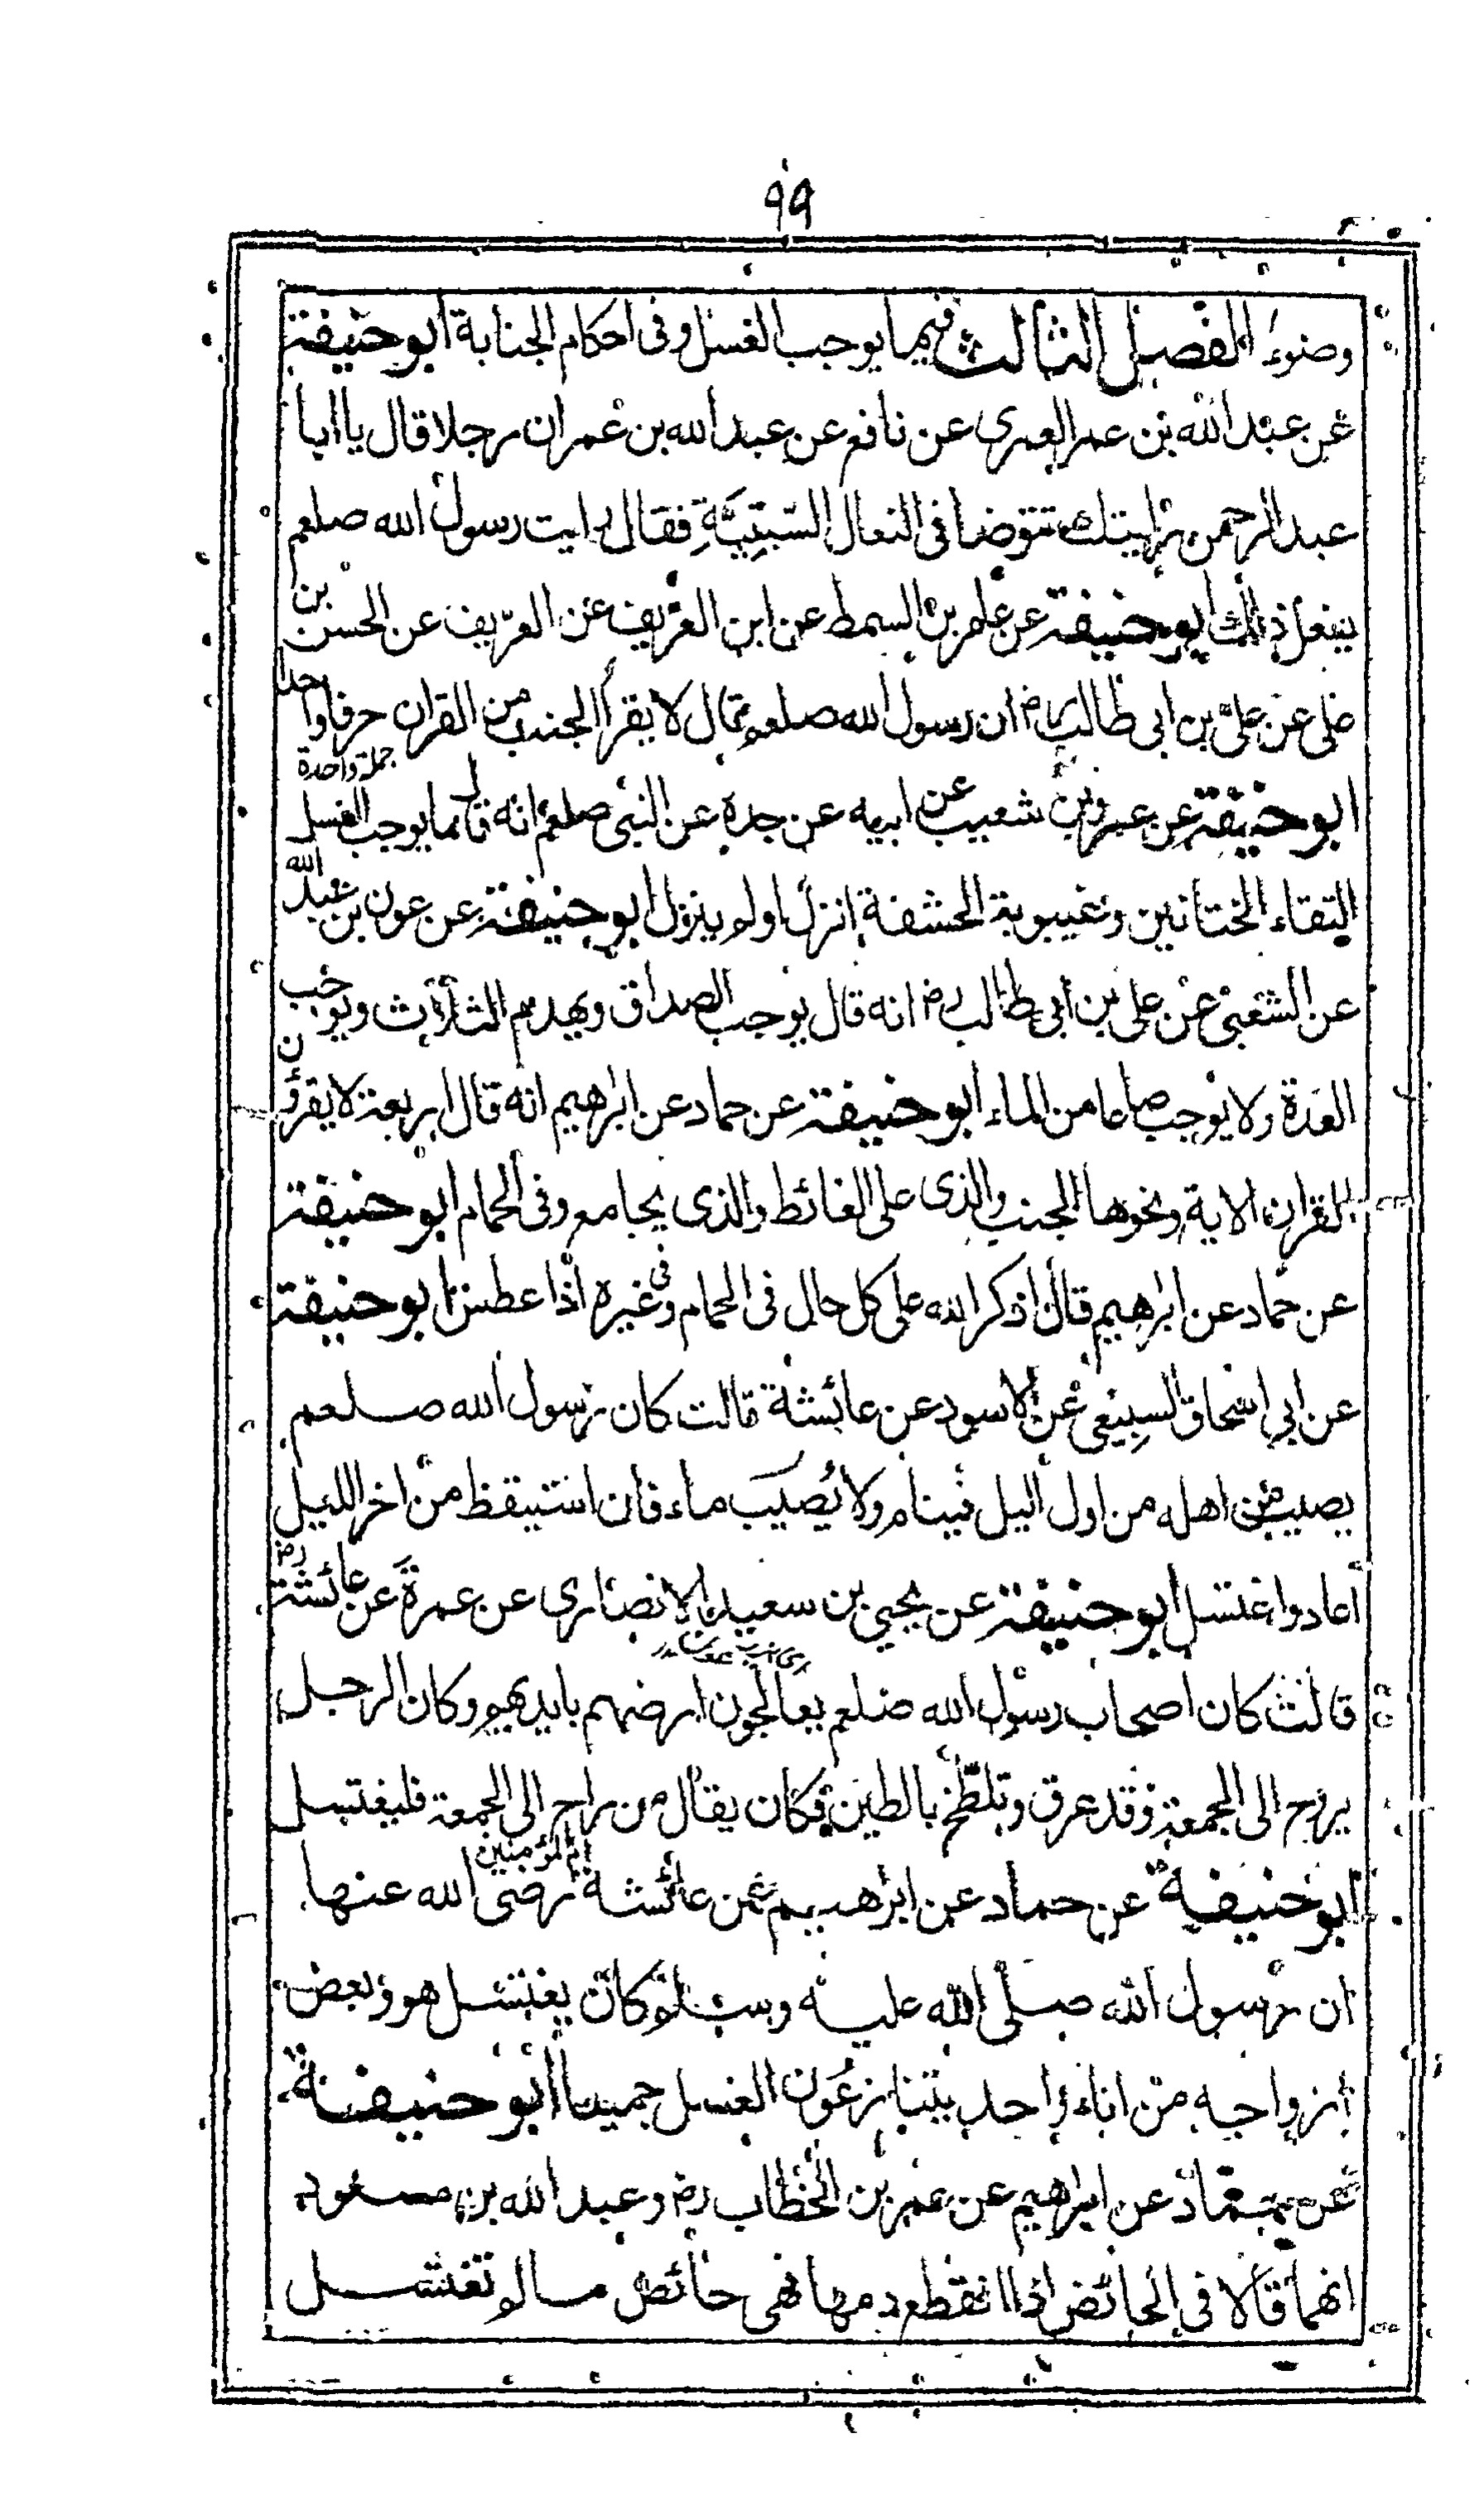 ٩٩
وضوء الفصل الثالث فيما يوجب الغسل وفى احكام الجنابة ابو حنيفة
عن عبد الله بن عمر العمرى عن نافع عن عبد الله بن عمر ان رجلا قال يا ابا
عبد الرحمن رايتك تتوضا فى النعال السِّبْتِيَّةِ فقال رايت رسول الله صلعم
يفعل ذلك ابو حنيفة عن عامر بن السمط عن ابن الغريف عن الغريف عن الحسن بن
على عن على بن ابى طالب رض ان رسول الله صلعم قال لا يقرأ الجنب من القران حرفا واحدا
جملة واحدة
ابو حنيفة عن عمرو بن شعيب عن ابيه عن جده عن النبى صلعم انه قال ما يوجب الغسل
التقاء الختانين وغيبوبة الحشفة انزل او لم ينزل ابو حنيفة عن عون بن عبد الله
عن الشعبى عن على بن ابى طالب رض انه قال يوجب الصداق ويهدم الثلاث ويوجب
العدة ولا يوجب صاعا من الماء ابو حنيفة عن حماد عن ابرهيم انه قال اربعة لا يقرؤن
القران الاية ونحوها الجنب والذى على الغائط والذى يجامع وفى الحمام ابو حنيفة
عن حماد عن ابرهيم قال اذكر الله على كل حال فى الحمام وفى غيره اذا عطس ابو حنيفة
عن ابى اسحاق السبيعى عن الاسود عن عائشة قالت كان رسول الله صلعم
يصيب من اهله من اول اليل فينام ولا يُصيب ماء فان استيقظ من اخر الليل
اعاد واغتسل ابو حنيفة عن يحيى بن سعيد الانصارى عن عمرة عن عائشة رض
قالت كان اصحاب رسول الله صلعم يعالجون ارضهم بايديهم وكان الرجل
يروح الى الجمعة وقد عرق وتلطخ بالطين فكان يقال من راح الى الجمعة فليغتسل
ابو حنيفة عن حماد عن ابرهيم عن عائشة ام المؤمنين رضى الله عنها
ان رسول الله صلى الله عليه وسلم كان يغتسل هو وبعض
ازواجه من اناء واحد يتنازعون الغسل جميعا ابو حنيفة
عن حماد عن ابراهيم عن عمر بن الخطاب رض وعبد الله بن مسعود
انهما قالا فى الحائض اذا انقطع دمها فهى حائض ما لم تغتسل